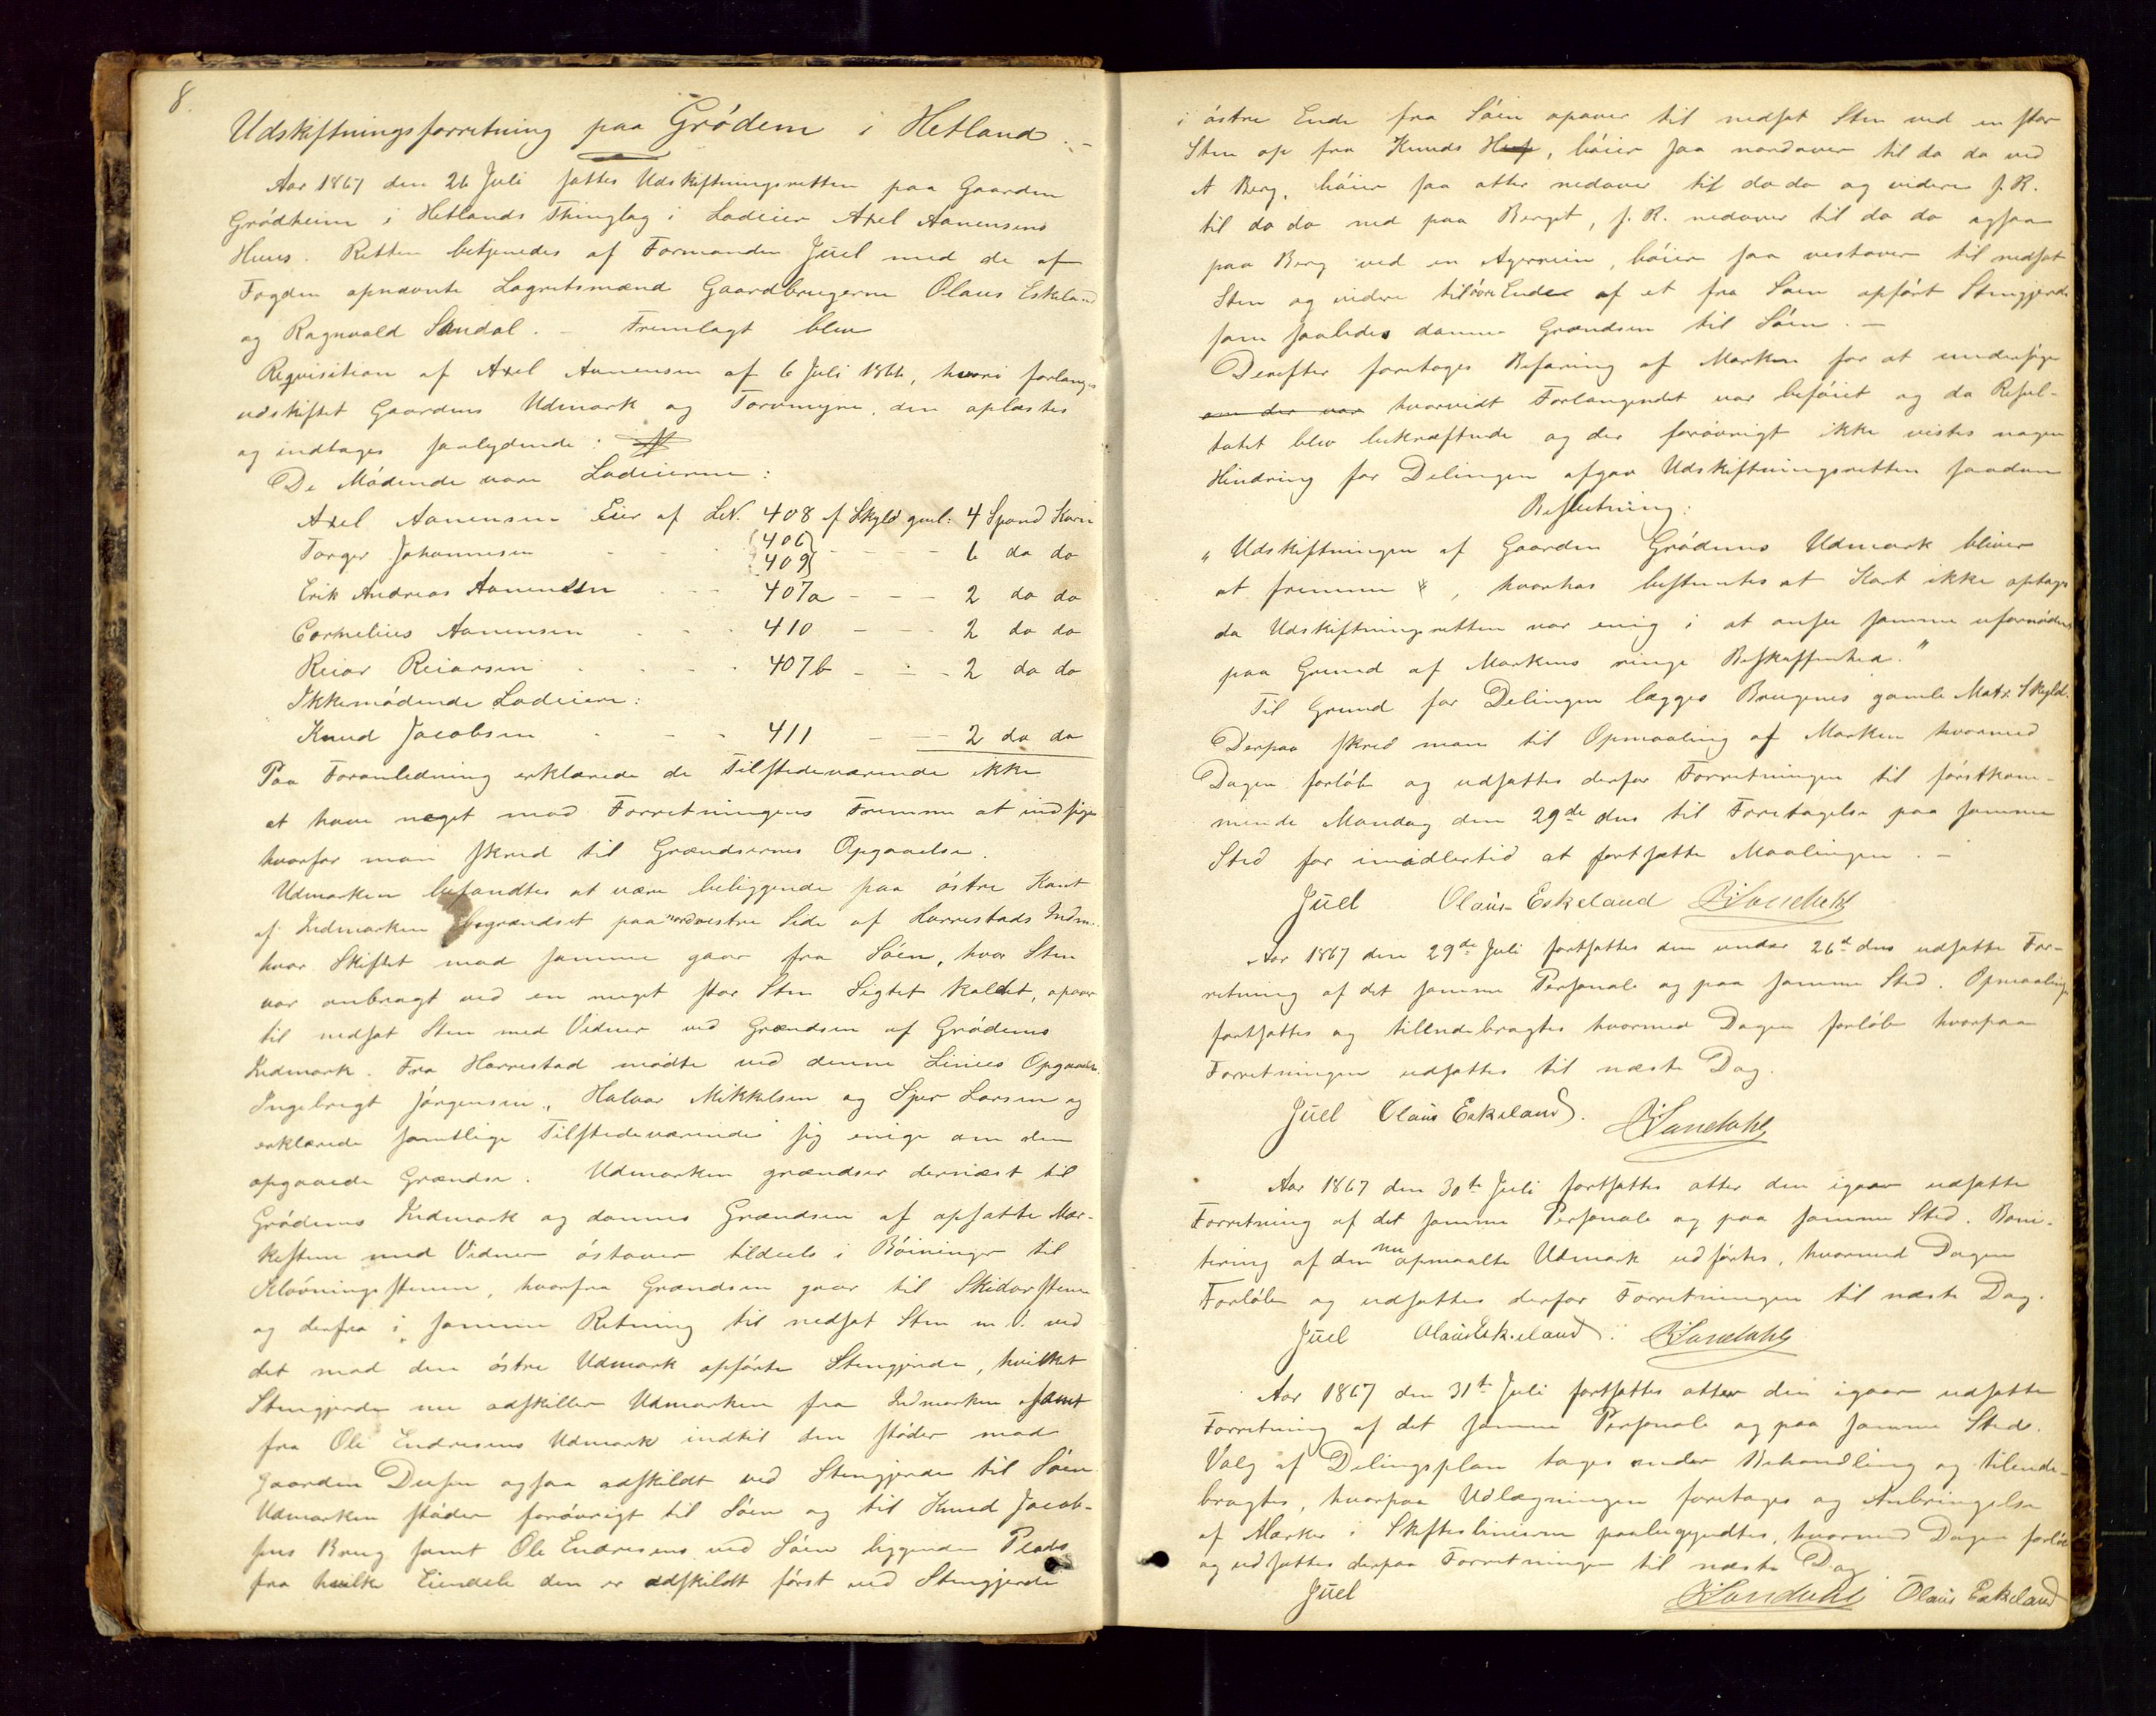 8.
Udskiftningsforretning paa Grödem i Hetland.-
Aar 1867 den 26 Juli sattes Udskiftningsretten paa Gaarden
Grödheim i Hetlands Thinglag i Lodeier Axel Aanensens
Huus. Retten betjenedes af Formanden Juel med de af
Fogden opnævnte Lagretsmænd Gaardbrugerne Olaus Eskeland
og Ragnvald Sandal. - Fremlagt blev
Reqvisition af Axel Aanensen af 6 Juli 1866, hvori forlanges
udskiftet Gaardens Udmark og Torvmyre, den oplæstes
og indtages saalydende:
De Mödende vare Lodeierne:
Axel Aanensen Eier af LN. 408 af Skyld gml: 4 Spand Korn
Torger Johannesen - - - (406) - - - - 6 do do
(409)
Erik Andreas Aanensen - - - 407a - - - 2 do do
Cornelius Aanensen - - - 410 - - - 2 do do
Reiar Reiarsen - - - 407b - - - 2 do do
Ikkemödende Lodeiere:
Knud Jacobsen - - - 411 - - 2 do do
Paa Foranledning erklærede de Tilstedeværende ikke
at have noget mod Forretningens Fremme at indsige
hvorfor man skred til Grændsernes Opgaaelse.
Udmarken befandtes at være beliggende paa östre Kant
af Indmarken begrændset paa nordvestre Side af Harrestads Indm.
hvor Skiftet mod samme gaar fra Söen, hvor Sten
var anbragt ved en meget stor Sten Sigtet kaldet, opover
til nedsat Sten med Vidner ved Grændsen af Grödems
Indmark. Fra Harrestad mödte ved denne Linies Opgaaelse
Ingebrigt Jörgensen, Halvor Mikkelsen og Sjur Larsen og
erklærede samtlige Tilstedeværende sig enige om den
opgaaede Grændse. Udmarken grændser dernæst til
Grödems Indmark og dannes Grændsen af opsatte Mær-
kestene med Vidner östover tildeels i Böininger til
Klövningsstenen, hvorfra Grændsen gaar til Skidorstene
og derfra i samme Retning til nedsat Sten m. V. ved
det mod den östre Udmark opförte Stengjerde, hvilket
Stengjerde nu adskiller Udmarken fra Indmarken samt
fra Ole Endresens Udmark indtil den stöder mod
Gaarden Dusen ogsaa adskildt ved Stengjerde til Söen
Udmarken stöder forövrigt til Söen og til Knud Jacob-
sens Brug samt Ole Endresens ved Söen liggende Plads
fra hvilke Eiendele den er adskildt först ved Stengjerde
i östre Ende fra Söen opover til nedsat Sten ved en stor
Sten op fra Knuds, böier saa nordover til do do ved
et Berg, böier saa atter nedover til do do og videre s. R.
til do do ned paa Berget, s. R. nedover til do do ogsaa
paa Berg ved en Agerrein, böier saa vestover til nedsat
Sten og videre til övre Ende af et fra Söen opfört Stengjerde
som saaledes danner Grændsen til Söen. -
Derefter foretoges Befaring af Marken for at undersöge
om der var hvorvidt Forlangendet var beföiet og da Resul-
tatet blev bekræftende og der forövrigt ikke vistes nogen
Hindring for Delingen afgav Udskiftningsretten saadan
Beslutning:
"Udskiftningen af Gaarden Grödems Udmark bliver
at fremme, hvorhos bestemtes at Kart ikke optages
da Udskiftningsretten var enig i at ansee samme ufornöden
paa Grund af Markens ringe Beskaffenhed."
Til Grund for Delingen lægges Brugenes gamle Matr. Skyld.
Derpaa skred man til Opmaaling af Marken hvormed
Dagen forlöb og udsattes derfor Forretningen til förstkom-
mende Mandag den 29de dns til Foretagelse paa samme
Sted for imidlertid at fortsætte Maalingen. -
Juel Olaus Eskeland RSandahl
Aar 1867 den 29de Juli fortsattes den under 26de dns udsatte For-
retning af det samme Personale og paa samme Sted. Opmaalingen
fortsattes og tilendebragtes hvormed Dagen forlöb hvorpaa
Forretningen udsattes til næste Dag.
Juel Olaus Eskeland. RSandahl
Aar 1867 den 30te Juli fortsattes atter den igaar udsatte
Forretning af det samme Personale og paa samme Sted. Boni-
tering af den nu opmaalte Udmark udförtes, hvormed Dagen
Forlöb og udsattes derfor Forretningen til næste Dag.
Juel Olaus Eskeland. RSandahl
Aar 1867 den 31te Juli fortsattes atter den igaar udsatte
Forretning af det samme Personale og paa samme Sted.
Valg af Delingsplan toges under Behandling og tilende-
bragtes, hvorpaa Udlægningen foretoges og Anbringelse
af Mærker i Skifteslinierne paabegyndtes, hvormed Dagen forlöb
og udsattes derpaa Forretningen til næste Dag
Juel RSandahl Olaus Eskeland